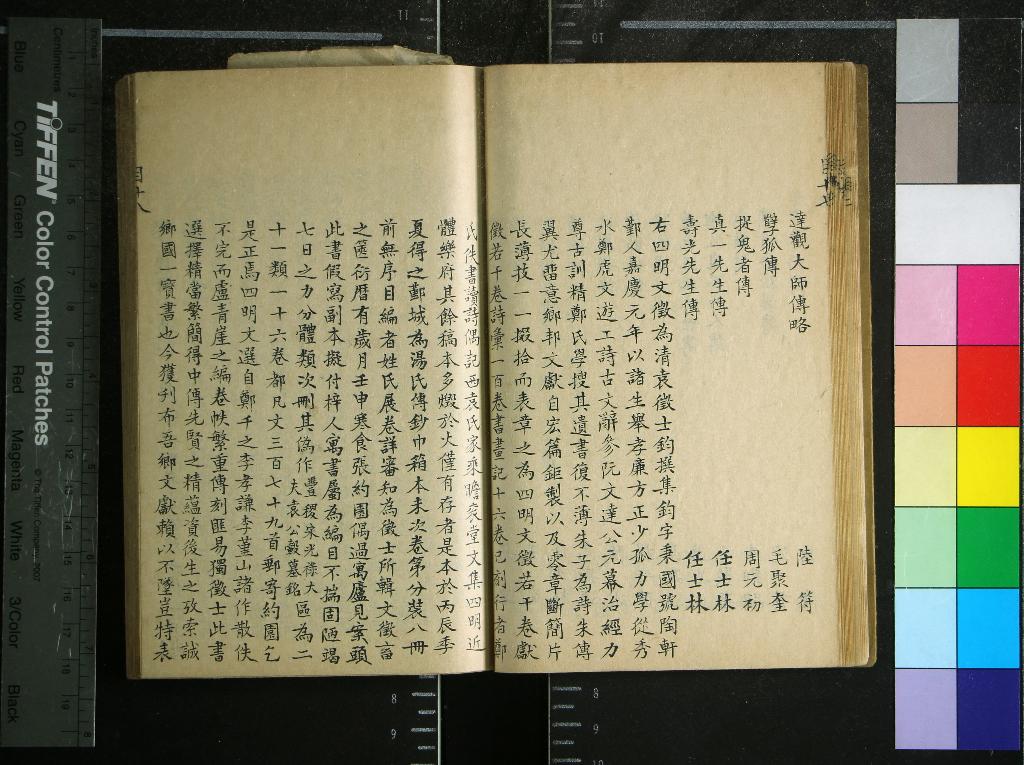 達觀大師傳略　陸符
孼狐傳　毛聚奎
捉鬼者傳　周元初
真一先生傳　任士林
壽光先生傳　任士林
右四明文徵為清袁徵士鈞撰集鈞字秉國號陶軒
鄞人嘉慶元年以諸生舉孝廉方正少孤力學從秀
水鄭虎文遊工詩古文辭參阮文達公元幕治經力
尊古訓精鄭氏學搜其遺書復不薄朱子為詩朱傳
翼尤留意鄉邦文獻自宏篇鉅製以及零章斷簡片
長薄技一一掇拾而表章之為四明文徵若干卷獻
徵若干卷詩彙一百卷書畫記十六卷已刻行者鄭
氏佚書讀詩偶記西袁氏家乘瞻袞堂文集四明近
體樂府其餘稿本多燬於火僅有存者是本於丙辰季
夏得之鄞城為湯氏傳鈔巾箱本未次卷第分裝八冊
前無序目編者姓氏展卷詳審知為徵士所輯文徵畜
之篋衍曆有歲月壬申寒食張約園偶過寓廬見案頭
此書假寫副本擬付梓人寓書屬為編目不揣固陋竭
七日之力分體類次刪其偽作豐稷宋光祿大夫袁公轂墓銘區為二
十一類一十六卷都凡文三百七十九首郵寄約園乞
是正焉四明文選自鄭千之李孝謙李堇山諸作散佚
不完而盧青崖之編卷帙繁重傳刻匪易獨徵士此書
選擇精當繁簡得中傳先賢之精蘊資後生之攷索誠
鄉國一寶書也今獲刊布吾鄉文獻賴以不墜豈特表
目十八
TIFFEN Color Control Patches
© The Tiffen Company, 2007
Centimetres
Inches
Blue
Cyan
Green
Yellow
Red
Magenta
White
3/Color
Black